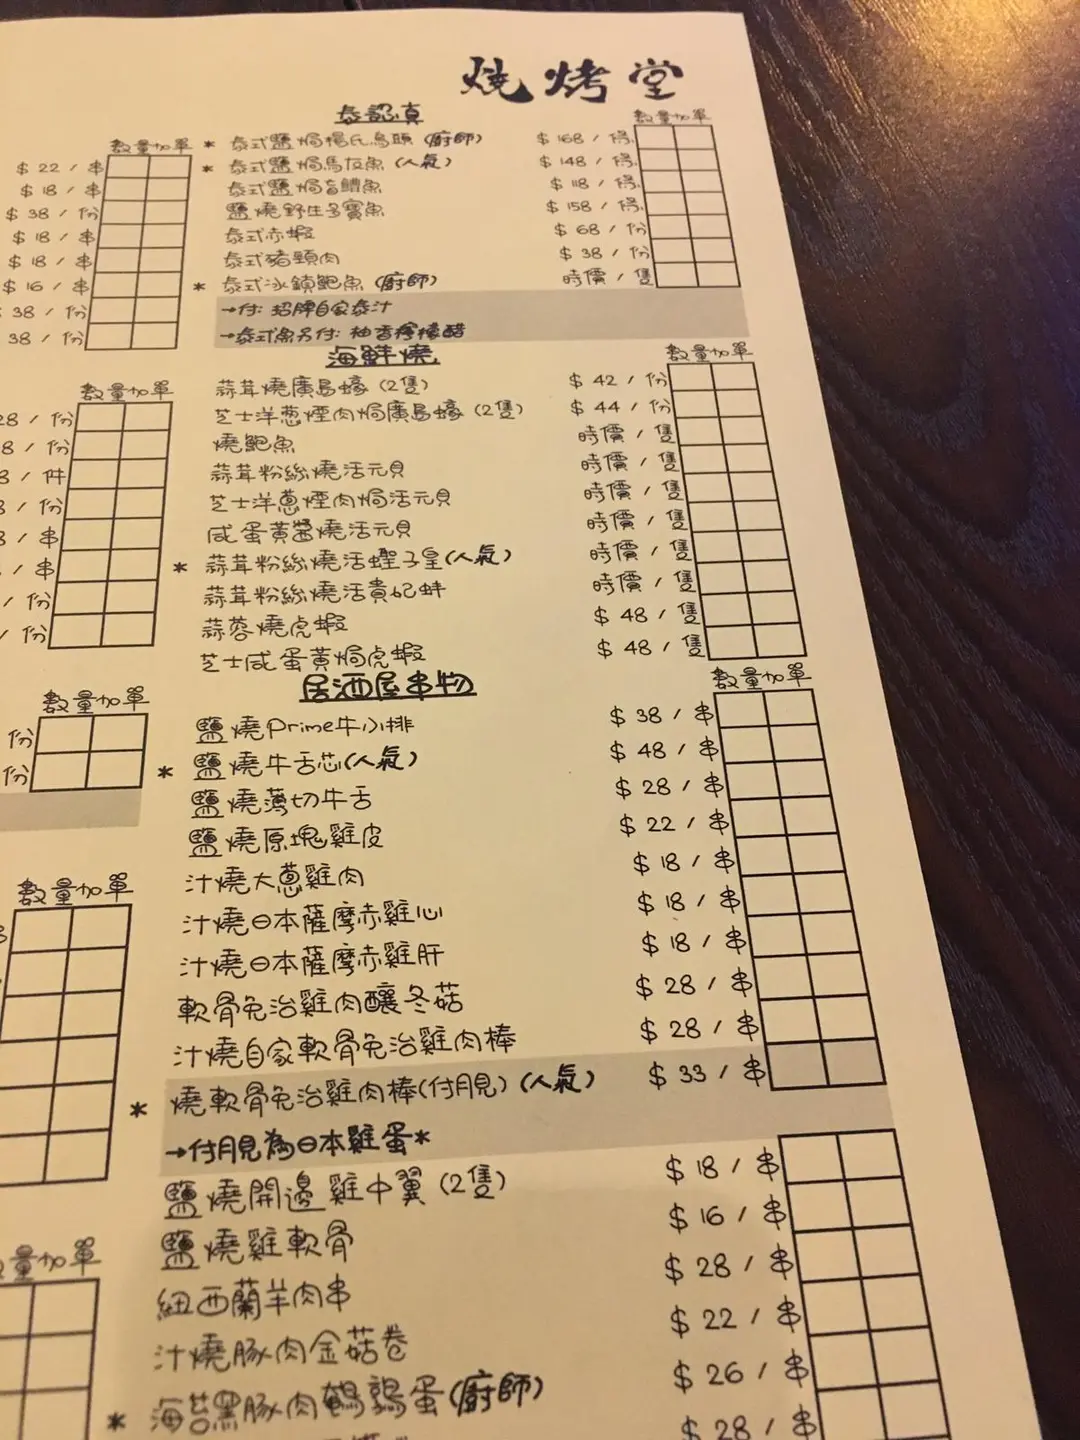 燒烤堂
泰認真
數量加單
數量加單
* 泰式鹽焗楊氏烏頭 (廚師) $ 168 / 條
* 泰式鹽焗馬友魚 (人氣) $ 148 / 條
泰式鹽焗盲鰽魚 $ 118 / 條
鹽燒野生多寶魚 $ 158 / 條
泰式赤蝦 $ 68 / 份
泰式豬頸肉 $ 38 / 份
* 泰式冰鎮鮑魚 (廚師) 時價 / 隻
→付: 招牌自家泰汁
→泰式魚另付: 柚香檸檬醋
$ 22 / 串
$ 18 / 串
$ 38 / 份
$ 18 / 串
$ 18 / 串
$ 16 / 串
38 / 份
38 / 份
海鮮燒
數量加單
數量加單
蒜茸燒廣島蠔 (2隻) $ 42 / 份
芝士洋蔥煙肉焗廣島蠔 (2隻) $ 44 / 份
燒鮑魚 時價 / 隻
蒜茸粉絲燒活元貝 時價 / 隻
芝士洋蔥煙肉焗活元貝 時價 / 隻
咸蛋黃醬燒活元貝 時價 / 隻
* 蒜茸粉絲燒活蟶子皇(人氣) 時價 / 隻
蒜茸粉絲燒活貴妃蚌 時價 / 隻
蒜蓉燒虎蝦 $ 48 / 隻
芝士咸蛋黃焗虎蝦 $ 48 / 隻
28 / 份
8 / 份
8 / 件
8 / 份
8 / 串
/ 串
/ 份
/ 份
居酒屋串物
數量加單
數量加單
份
份
鹽燒Prime牛小排 $ 38 / 串
* 鹽燒牛舌芯(人氣) $ 48 / 串
鹽燒薄切牛舌 $ 28 / 串
鹽燒原塊雞皮 $ 22 / 串
汁燒大蔥雞肉 $ 18 / 串
汁燒日本薩摩赤雞心 $ 18 / 串
汁燒日本薩摩赤雞肝 $ 18 / 串
軟骨免治雞肉釀冬菇 $ 28 / 串
汁燒自家軟骨免治雞肉棒 $ 28 / 串
* 燒軟骨免治雞肉棒(付月見) (人氣) $ 33 / 串
→付月見為日本雞蛋*
數量加單
鹽燒開邊雞中翼 (2隻) $ 18 / 串
鹽燒雞軟骨 $ 16 / 串
紐西蘭羊肉串 $ 28 / 串
汁燒豚肉金菇卷 $ 22 / 串
* 海苔黑豚肉鵪鶉蛋(廚師) $ 26 / 串
$ 28 / 串
數量加單